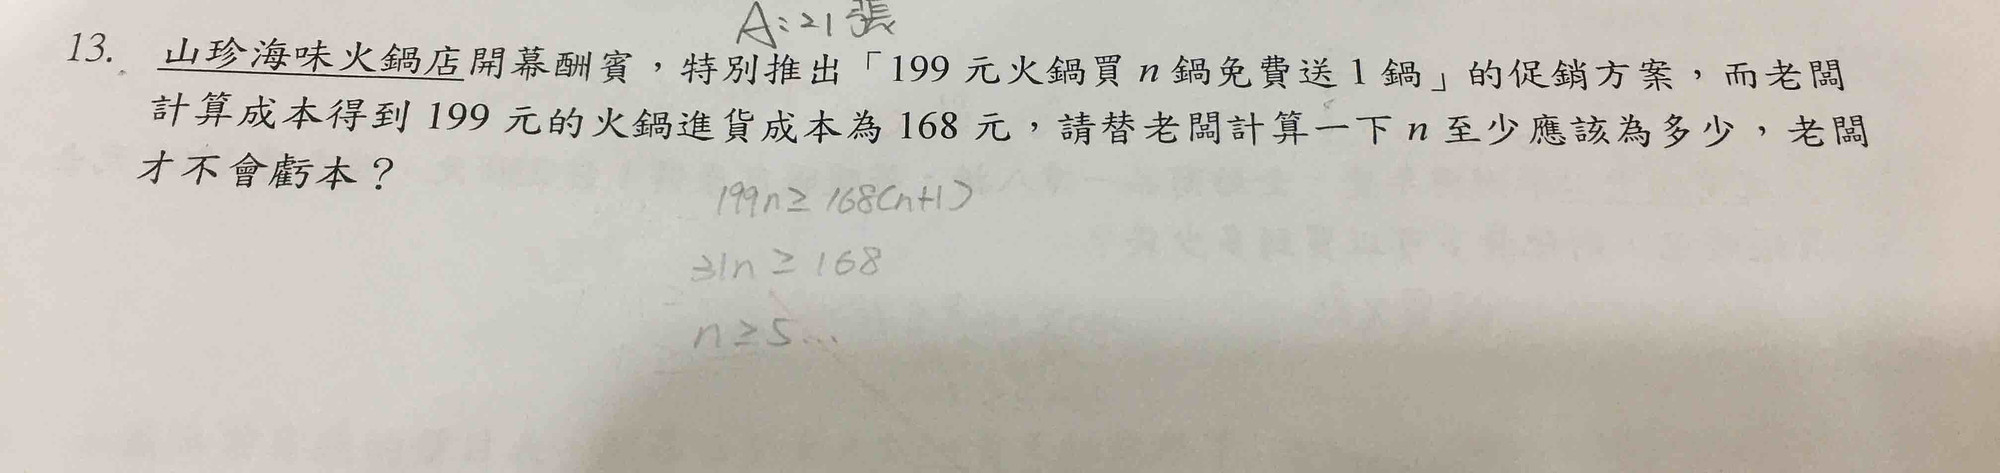 A:21張
13. 山珍海味火鍋店開幕酬賓，特別推出「199 元火鍋買 n 鍋免費送 1 鍋」的促銷方案，而老闆
計算成本得到 199 元的火鍋進貨成本為 168 元，請替老闆計算一下 n 至少應該為多少，老闆
才不會虧本？
199n≥168(n+1)
31n≥168
n≥5...